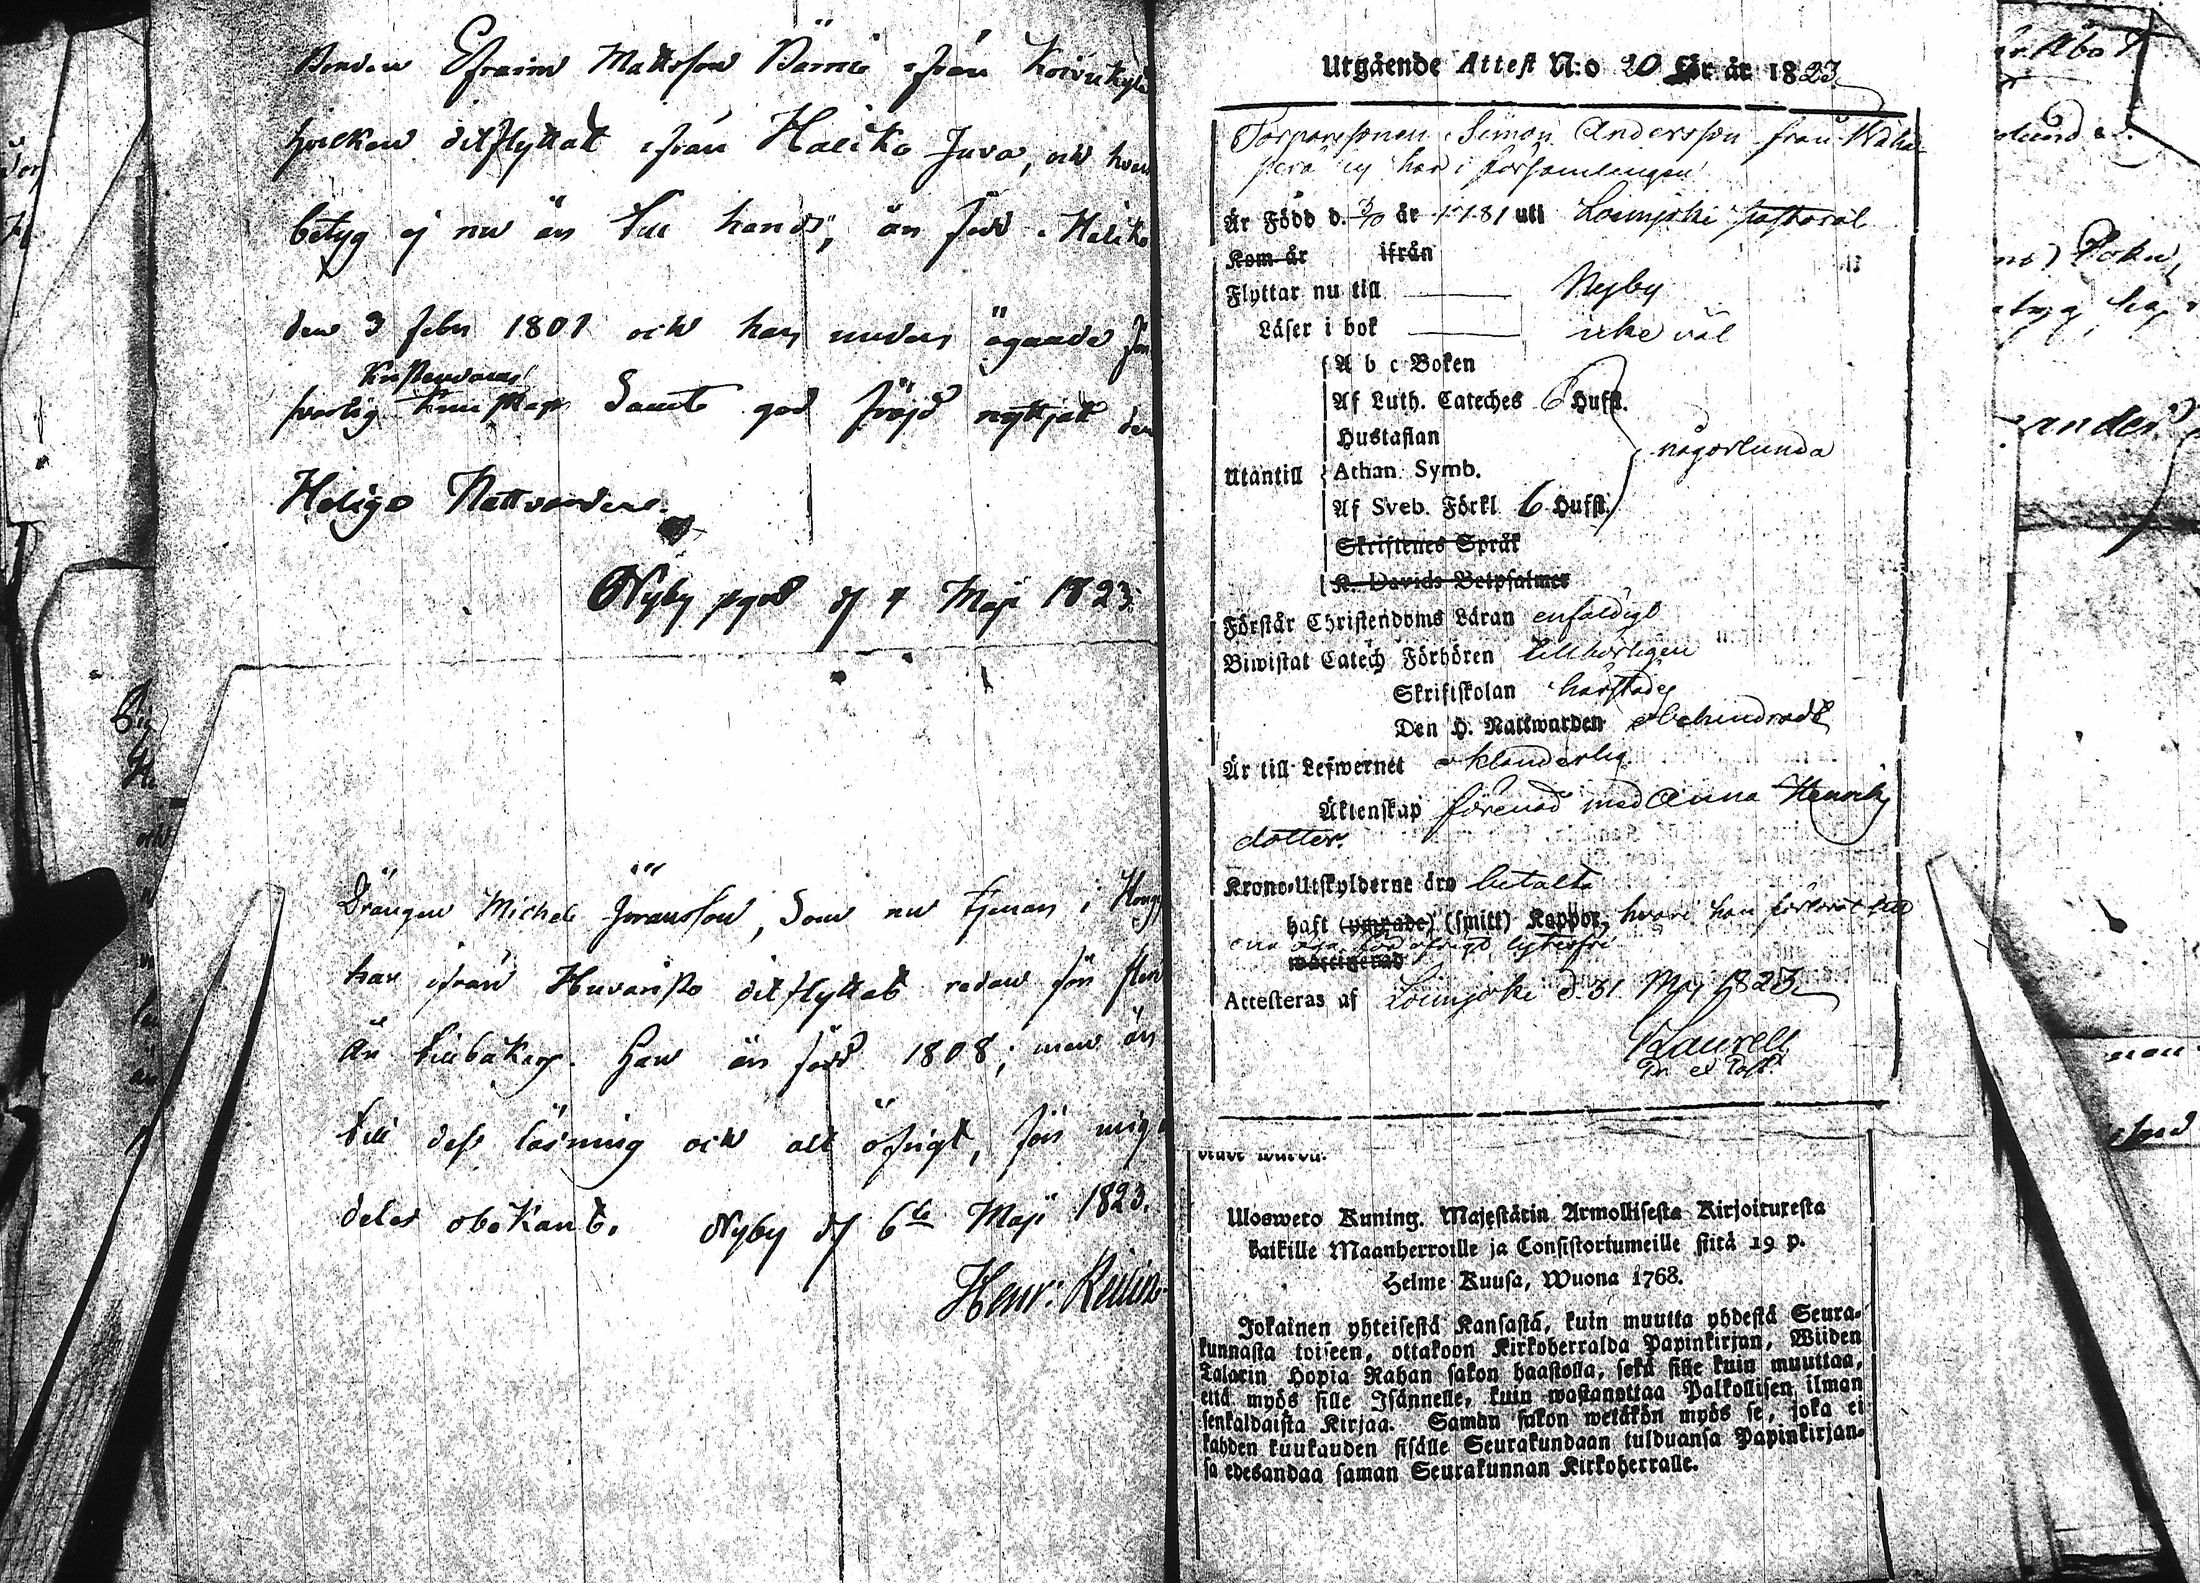 Bonden Efraim Mattsson Barnie ifrån Koivukylä
hvilken ditflyttat ifrån Haliko Juva, och hvars
betyg ej nu än till hands, är född i Haliko
den 3 febr 1801 och har under ägande för
Kristendoms
svarlig Kunskap samt god fräjd nyttjat den
Heliga Nattvarden.
Nyby pgd d 7 Maji 1823.
Drängen Michel Göransson, som nu tjenar i
har ifrån Huvaristo ditflyttat redan för flere
år tillbakars. Han är född 1808; men är
till dess läsning och alt öfrigt, för mig
deles obekant. Nyby d 6te Maji 1823.
Henr: Relin
Utgående Attest N:o 20 för år 1823
Torparesonen Simon Andersson från
by här i församlingen
Är Född d. 3/10 år 1781 uti Loimjoki Pastorat
Kom år ifrån
Flyttar nu till Nyby
Läser i bok icke väl
A b c Boken
Af Luth. Cateches 6 Hufst.
Hustaflan
någorlunda
Utantill Athan. Symb.
Af Sveb. Förkl. 6 Hufst.
Skriftenes Språk
K. Davids Botpsalmer
Förstår Christendoms Läran enfaldigt
Biwistat Catech Förhören tillbörligen
Skriftskolan härstädes
Den H. Nattwarden obehindradt
Är till Lefwernet oklanderlig
Äktenskap förenad med Anna Henriks
dotter.
Krono-Utskylderne äro betalte
haft (ympade) (smitt) Koppor, hvari han förlorat ett
öga, för öfrigt lytesfri
waccinerad
Attesteras af Loimjoki d. 31 Maj 1823.
Laurell
Ulosweto Kuning. Majestätin Armollisesta Kirjoituresta
kaikille Maanherroille ja Consistoriumeille siitä 19 p.
Helme Kuusa, Wuona 1768.
Jokainen yhteisestä Kansasta, kuin muutta yhdestä Seura-
kunnasta toiseen, ottakoon Kirkoherralda Papinkirjan, Wiiden
Talarin Hopia Rahan sakon haastolla, sekä sille kuin muuttaa,
että myös sille Isännelle, kuin wastanottaa Palkollisen ilman
senkaldaista Kirjaa. Saman sakon wetäkön myös se, joka ei
kahden kuukauden sisälle Seurakundaan tulduansa Papinkirjan-
sa edesandaa saman Seurakunnan Kirkoherralle.